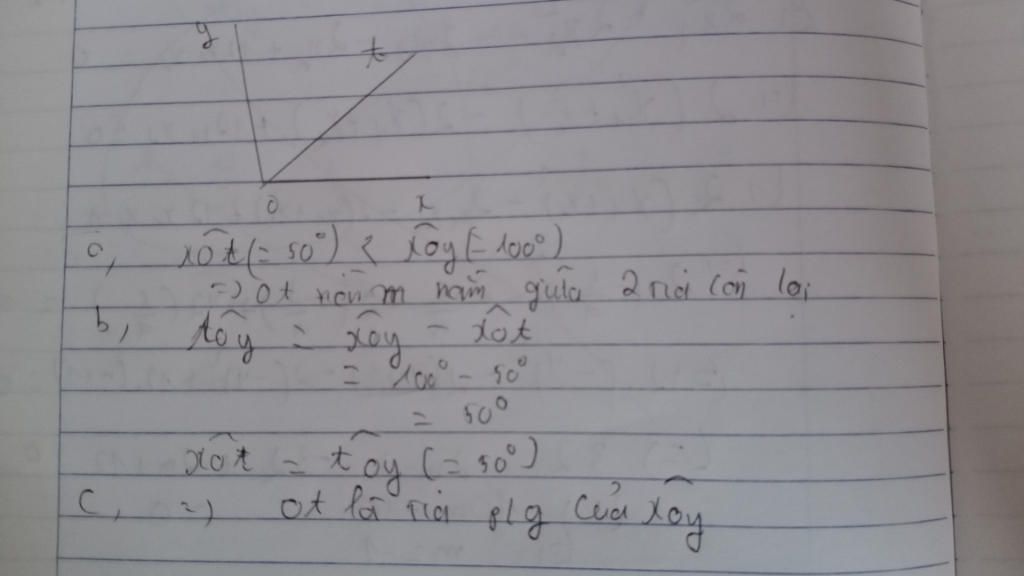 y
t
O
x
a, xÔt (= 50°) < xÔy (= 100°)
=> Ot nằm nằm giữa 2 tia còn lại
b, tÔy = xÔy - xÔt
= 100° - 50°
= 50°
xÔt = tÔy (= 50°)
c, => Ot là tia p/g của xÔy